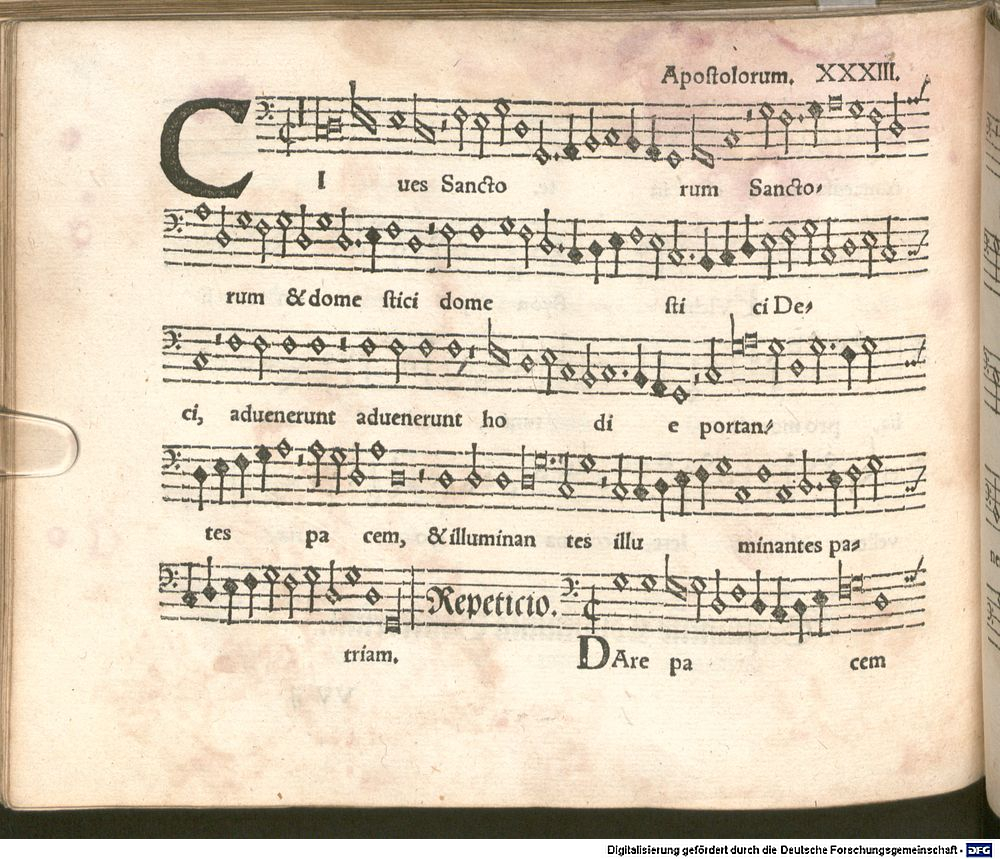 Apostolorum. XXXIII.
CI ues Sancto rum Sancto⸗
rum & dome stici dome sti ci De⸗
ci, aduenerunt aduenerunt ho di e portan⸗
tes pa cem, & illuminan tes illu minantes pa⸗
triam.
Repeticio.
DAre pa cem
Digitalisierung gefördert durch die Deutsche Forschungsgemeinschaft - DFG